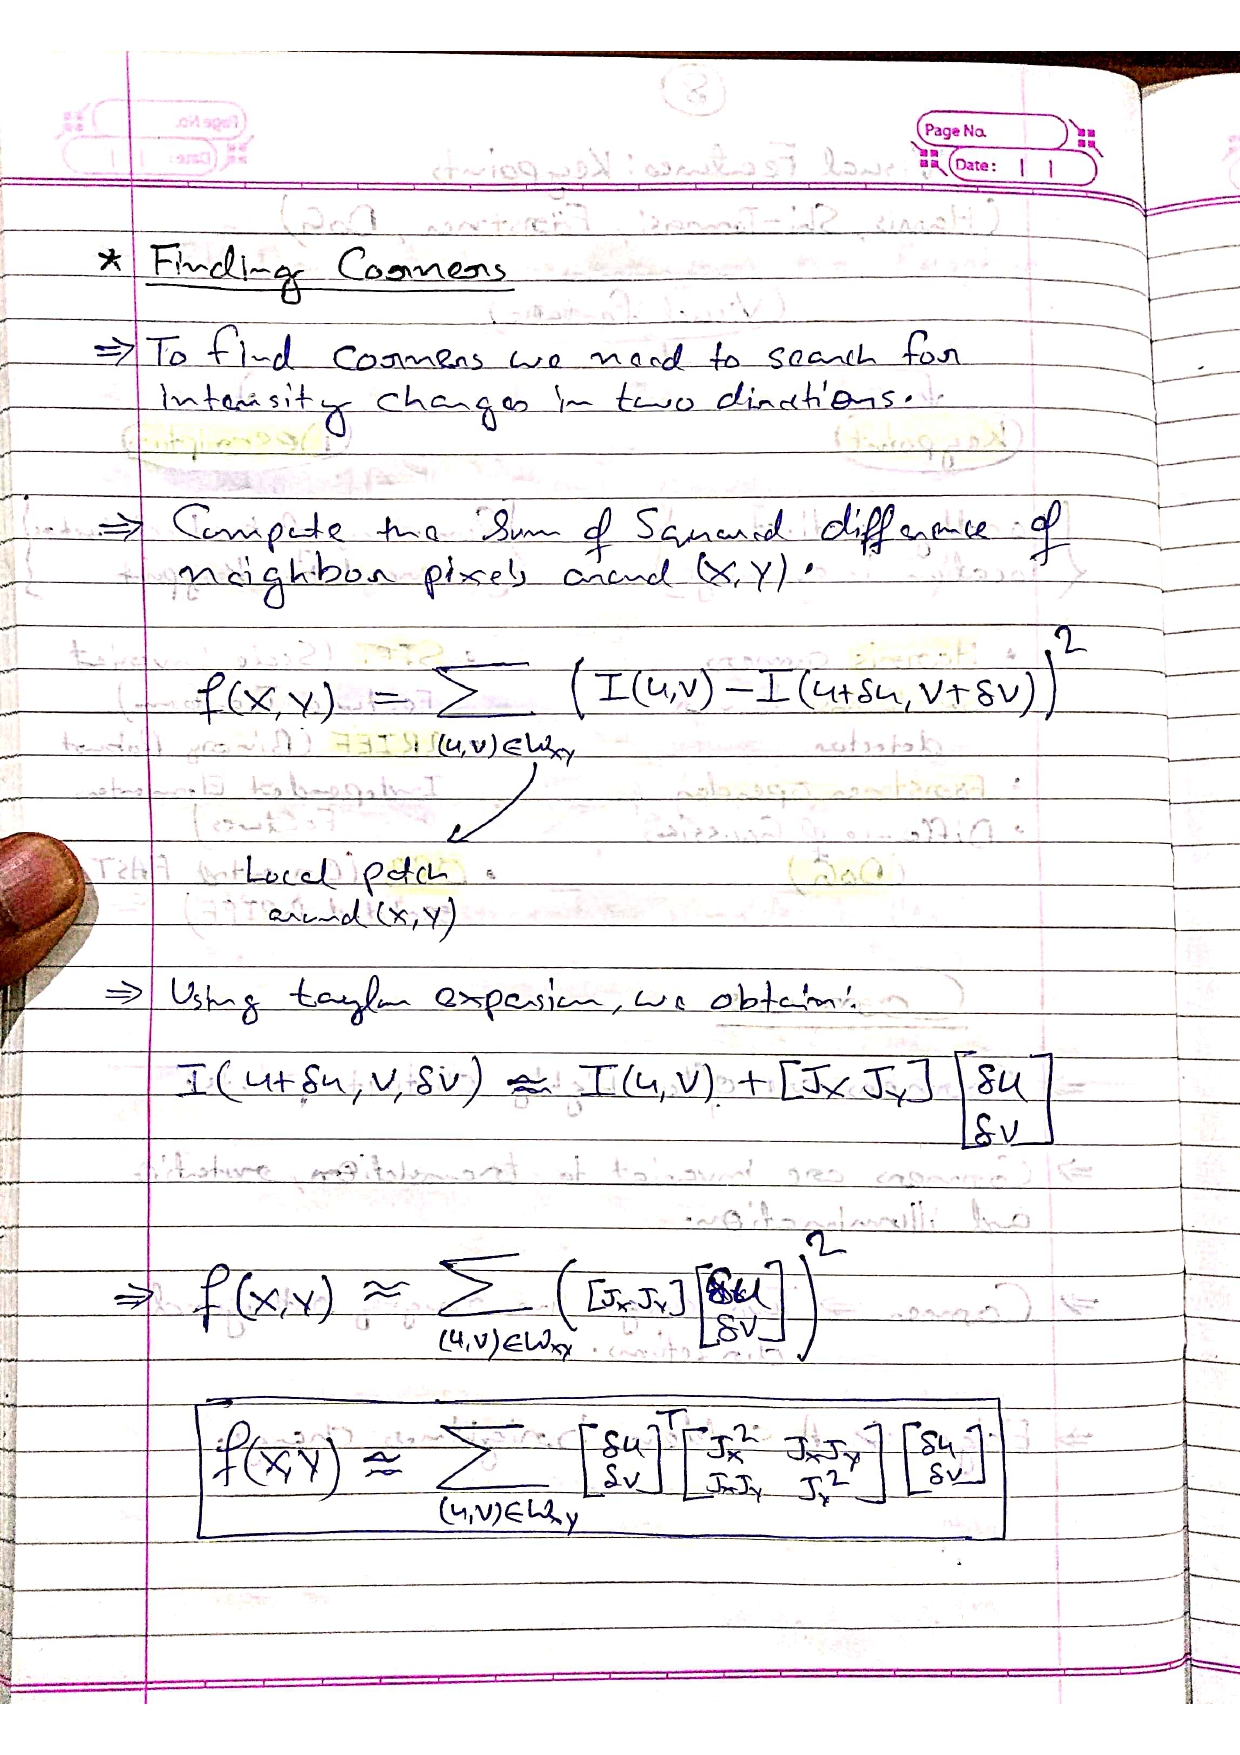 Page No.
Date: | |
* Finding Corners
⇒ To find corners we need to search for
intensity changes in two directions.
⇒ Compute the Sum of Squared difference of
neighbor pixels around (x,y).
f(x,y) = Σ_{(u,v)∈W_{xy}} (I(u,v) - I(u+δu, v+δv))²
Local patch
around (x,y)
⇒ Using taylor expansion, we obtain:
I(u+δu, v, δv) ≈ I(u,v) + [Jx Jy] [δu δv]
⇒ f(x,y) ≈ Σ_{(u,v)∈W_{xy}} ([Jx Jy] [δu δv])²
f(x,y) ≈ Σ_{(u,v)∈W_{xy}} [δu δv]^T [Jx² JxJy JxJy Jy²] [δu δv]